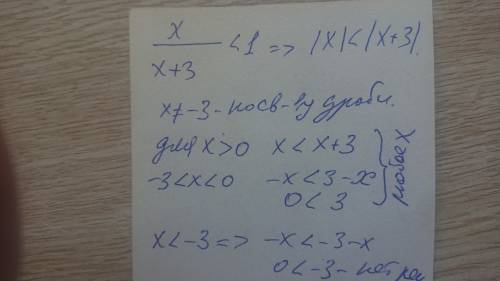 x/(x+3) < 1 => |x| < |x+3|.
x ≠ -3 - по св-ву дроби.
для x > 0   x < x+3
-3 < x < 0   -x < 3 - x
0 < 3
любое x
x < -3 => -x < -3 - x
0 < -3 - нет реш